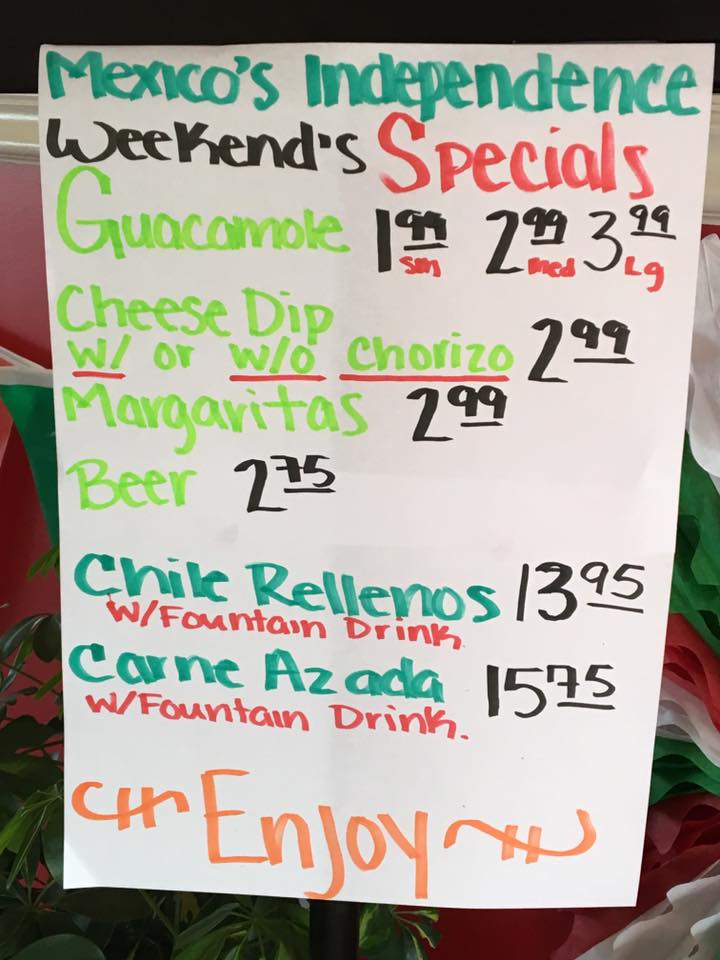 Mexico's Independence
Weekend's Specials
Guacamole 1.99 sm 2.99 med 3.99 Lg
Cheese Dip
w/ or w/o chorizo 2.99
Margaritas 2.99
Beer 2.75
Chile Rellenos 13.95
W/Fountain Drink
Carne Azada 15.75
W/Fountain Drink.
Enjoy